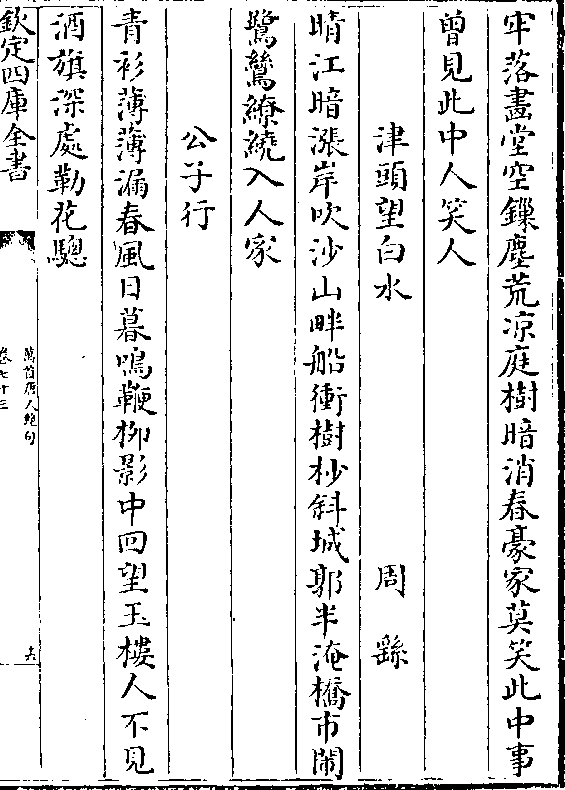 牢落畵堂空鏁塵荒凉庭樹暗消春豪家莫笑此中事
曽見此中人笑人
津頭望白水 周繇
晴江暗漲岸吹沙山畔船衝樹杪斜城郭半淹橋市閙
鷺鷥繚繞入人家
公子行
青衫薄薄漏春風日暮鳴鞭柳影中回望玉樓人不見
酒旗深處勒花驄
欽定四庫全書
萬首唐人絶句
卷七十三
六